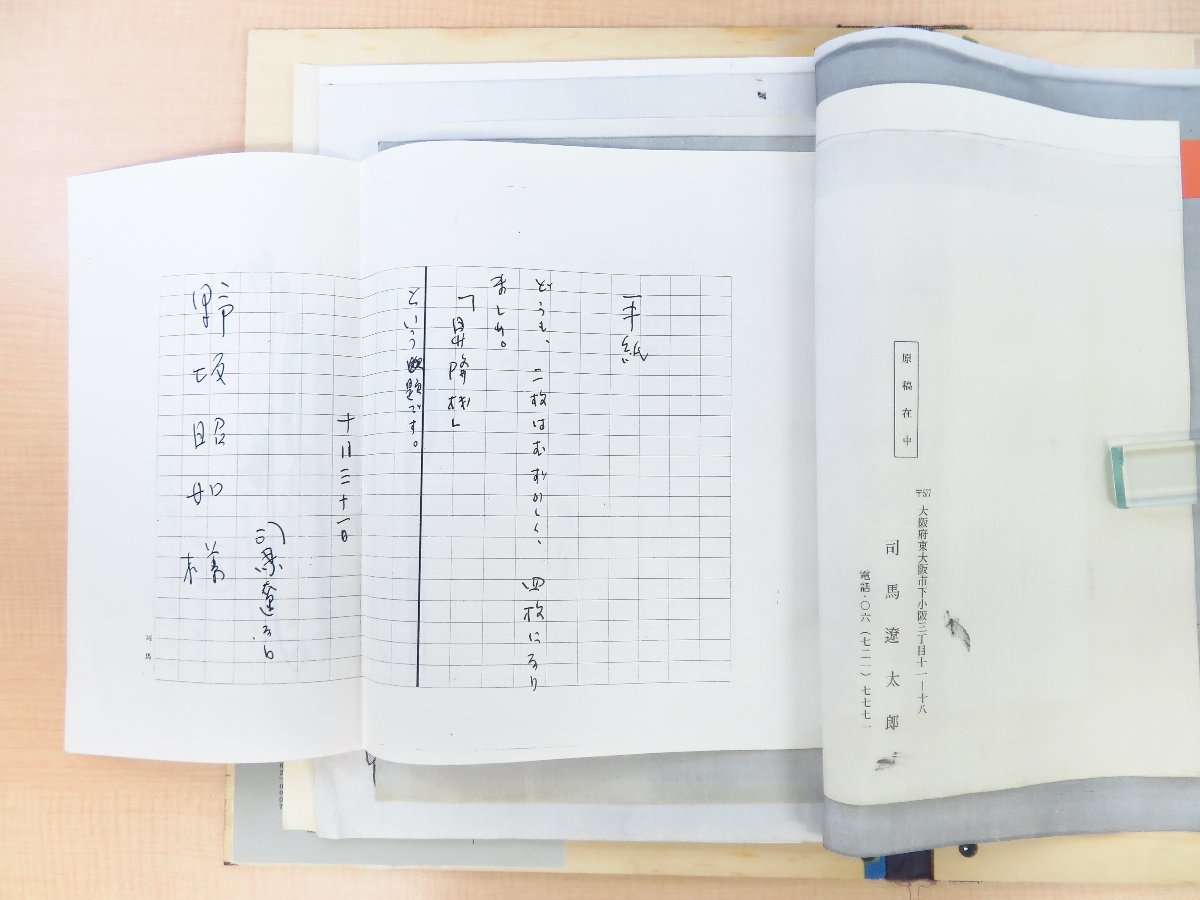 原稿在中
〒577
大阪府東大阪市下小阪三丁目十一―十八
司馬遼太郎
電話・〇六(七二一)七七七一
手紙
どうも、二枚はむずかしく、四枚になり
ました。
「昇降機」
という題です。
十月三十一日
司馬遼太郎
野坂昭如様
司馬